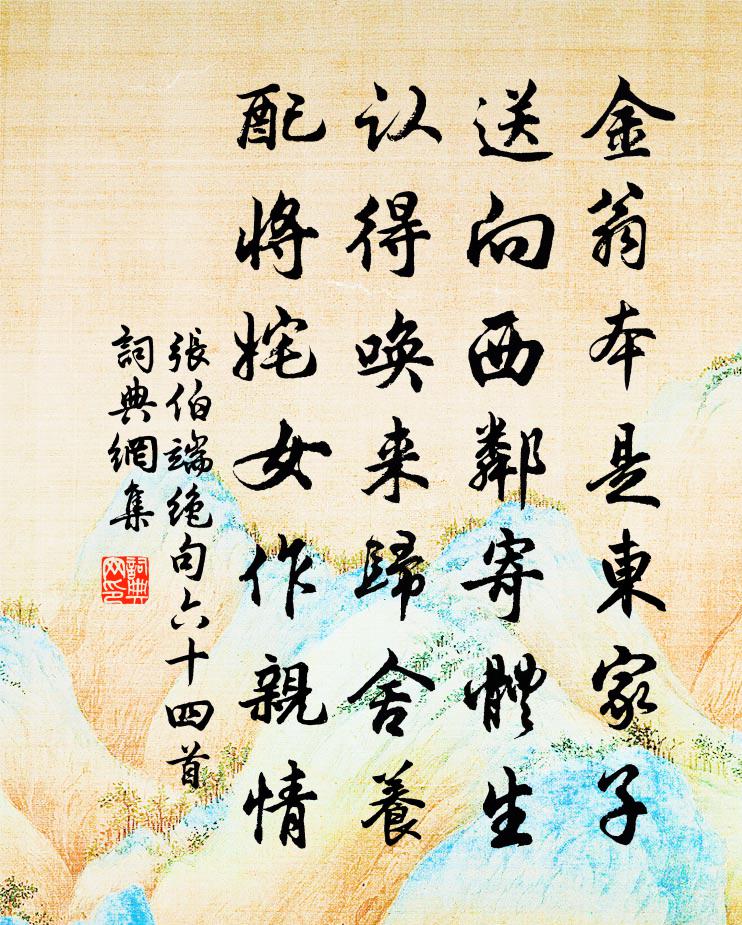 金翁本是東家子
送向西鄰寄體生
认得唤来歸舍養
配将姹女作親情
張伯端绝句六十四首
詞典網集
詞典网印